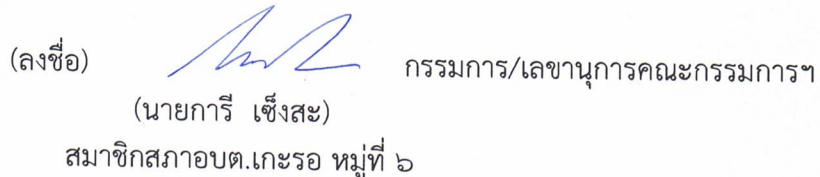 (ลงชื่อ) กรรมการ/เลขานุการคณะกรรมการฯ
(นายการี เซ็งสะ)
สมาชิกสภาอบต.เกะรอ หมู่ที่ ๖